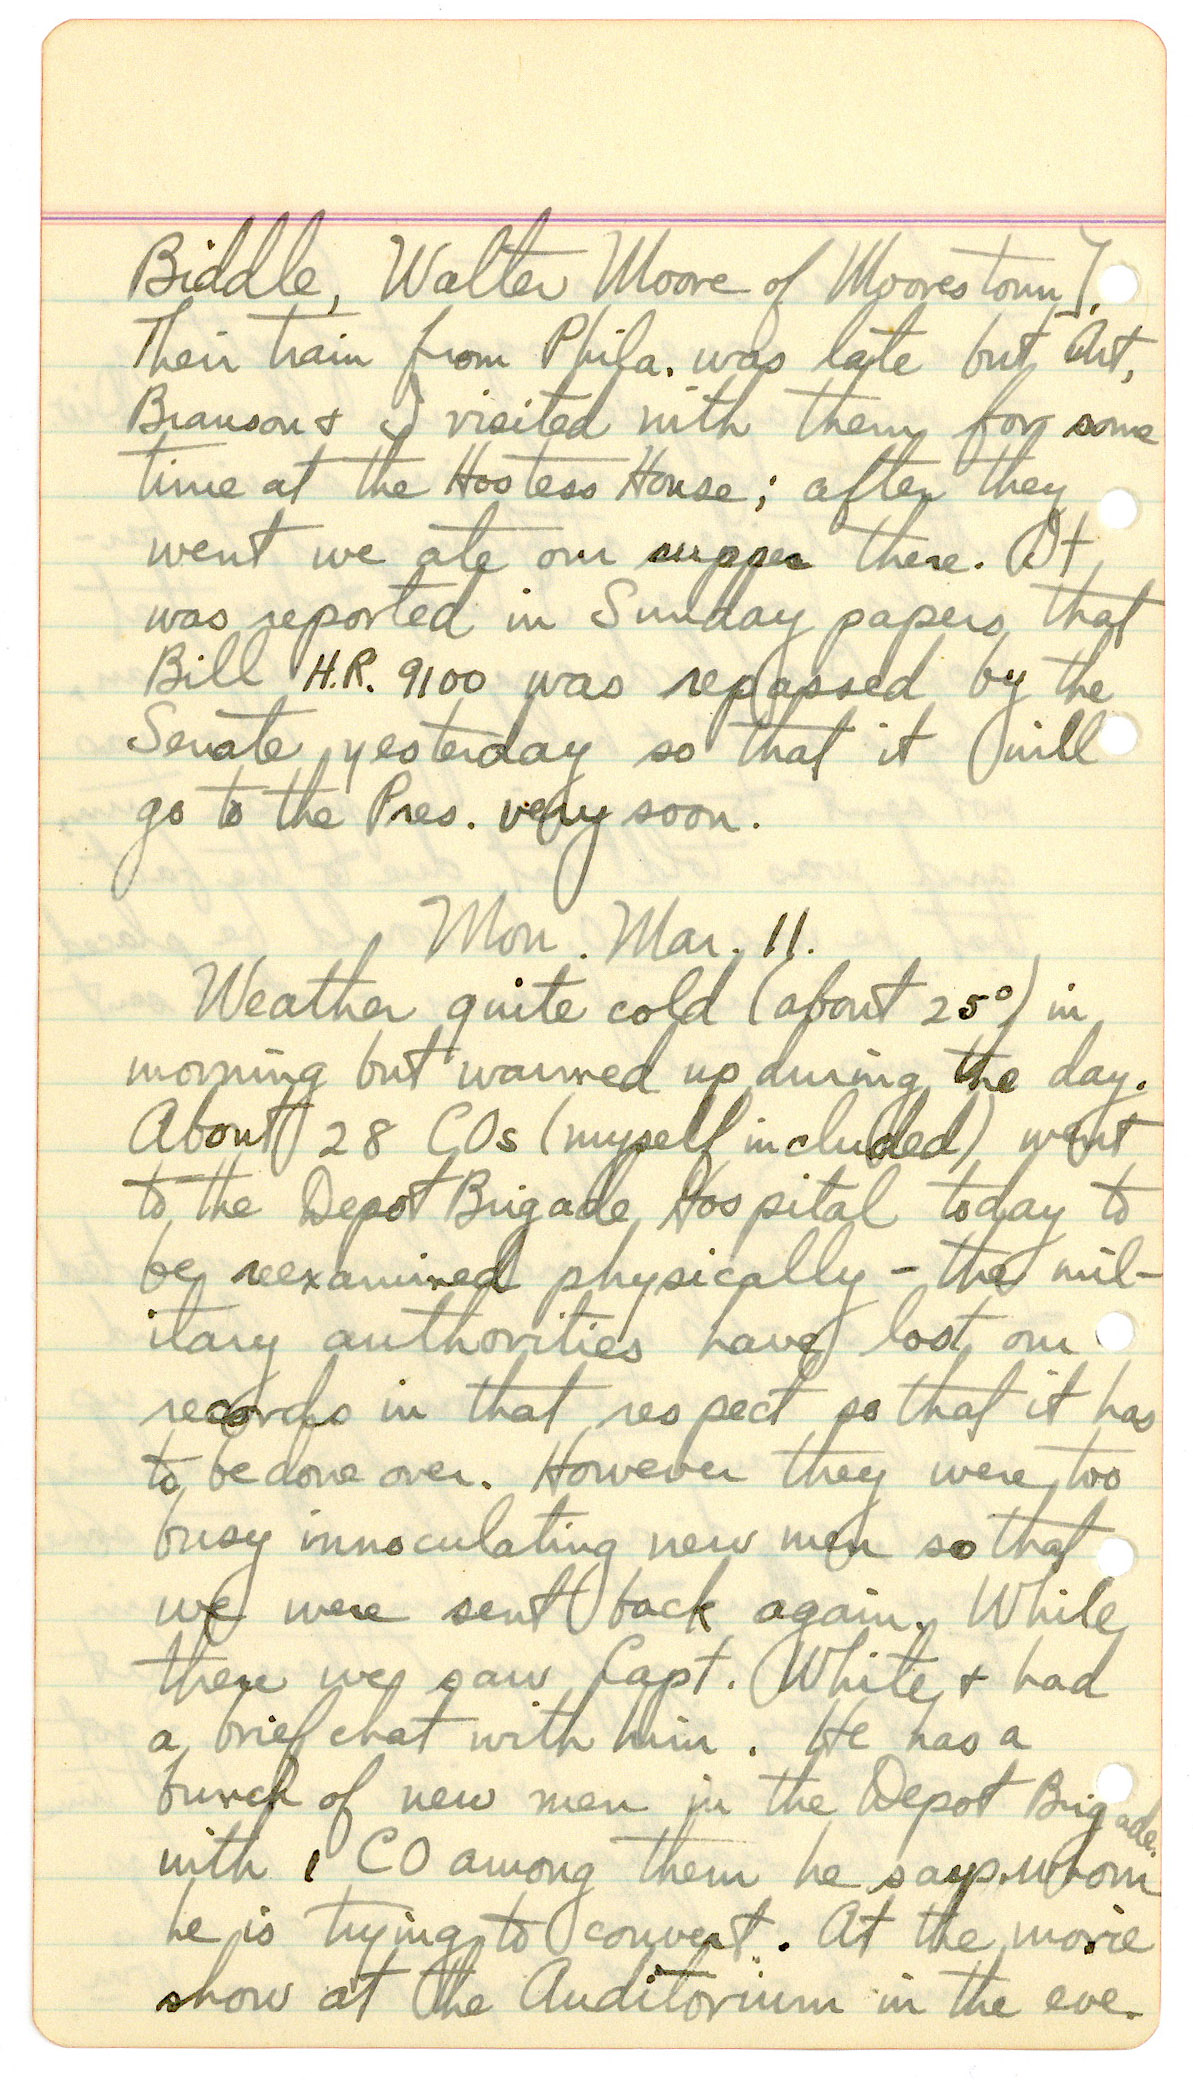 Biddle, Walter Moore of Moorestown].
Their train from Phila. was late but Art,
Branson & I visited with them for some
time at the Hostess House; after they
went we ate our supper there. It
was reported in Sunday papers that
Bill H.R. 9100 was repassed by the
Senate yesterday so that it will
go to the Pres. very soon.
Mon. Mar. 11.
Weather quite cold (about 25°) in
morning but warmed up during the day.
About 28 COs (myself included) went
to the Depot Brigade Hospital today to
be reexamined physically - the mil-
itary authorities have lost our
records in that respect so that it has
to be done over. However they were too
busy innoculating new men so that
we were sent back again. While
there we saw Capt. White & had
a brief chat with him. He has a
bunch of new men in the Depot Brigade.
with 1 CO among them he says whom
he is trying to convert. At the movie
show at the Auditorium in the eve.